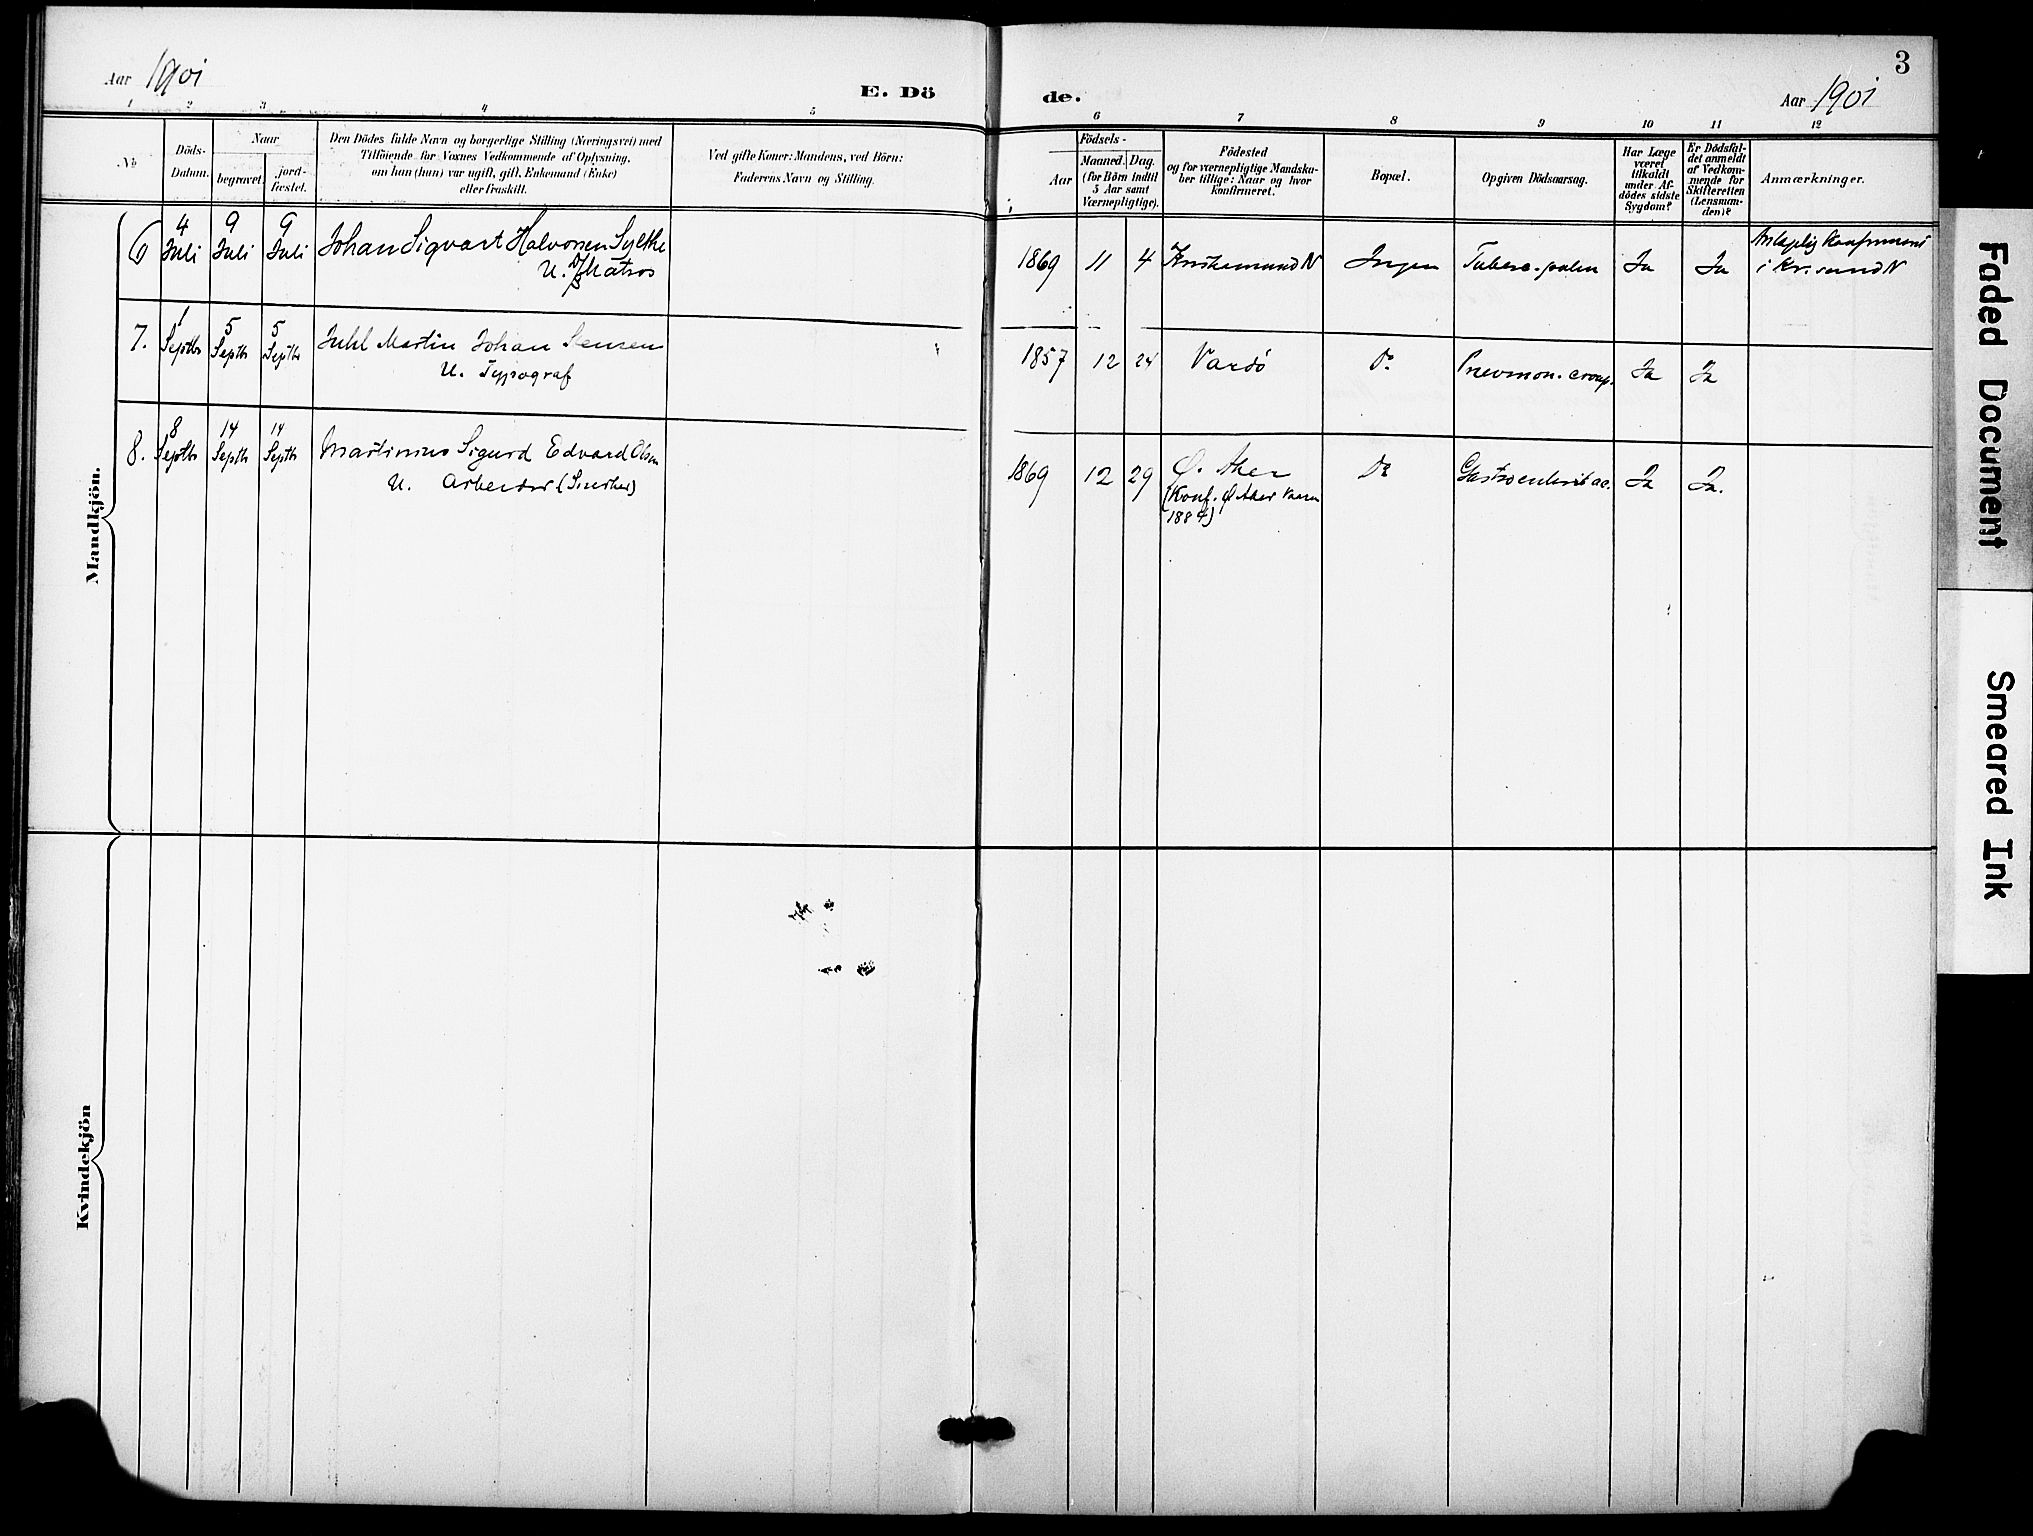 Aar 1901
E. Dö
de.
Aar 1901
3
1 2 3 4 5 6 7 8 9 10 11 12
No
Döds-
Datum.
Naar
begravet.
jord-
fæstet.
Den Dödes fulde Navn og borgerlige Stilling (Næringsvei) med
Tilföiende for Voxnes Vedkommende af Oplysning,
om han (hun) var ugift, gift, Enkemand (Enke)
eller fraskilt.
Ved gifte Koner: Mandens, ved Börn:
Faderens Navn og Stilling.
Födsels-
Aar
Maaned. Dag.
(for Börn indtil
5 Aar samt
Værnepligtige).
Födested
og for værnepligtige Mandska-
ber tillige: Naar og hvor
konfirmeret.
Bopæl.
Opgiven Dödsaarsag.
Har Læge
været
tilkaldt
under Af-
dödes sidste
Sygdom?
Er Dödsfal-
det anmeldt
af Vedkom-
mende for
Skifteretten
(Lensman-
den)?
Anmærkninger.
Mandkjön.
6 4 Juli 9 Juli 9 Juli Johan Sigvart Halvorsen Sylthe
U. Matros
1869 11 4 Kristiansund N Ingen Taberc. pulm Ja Ja
i Kr.sund N
7. 1 Septbr 5 Septbr 5 Septbr Juhl Martin Johan Jensen
U. Typograf
1857 12 24 Vardö Do Pnevmon. croup. Ja Ja
8. 8 Septbr 14 Septbr 14 Septbr Martinius Sigurd Edvard Olsen
U. Arbeider (Snedker)
1869 12 29 Ø. Aker Do Gastroenterit ac. Ja Ja.
(Konf. Ø Aker Vaaren
1884)
Kvindekjön
Faded Document
Smeared Ink